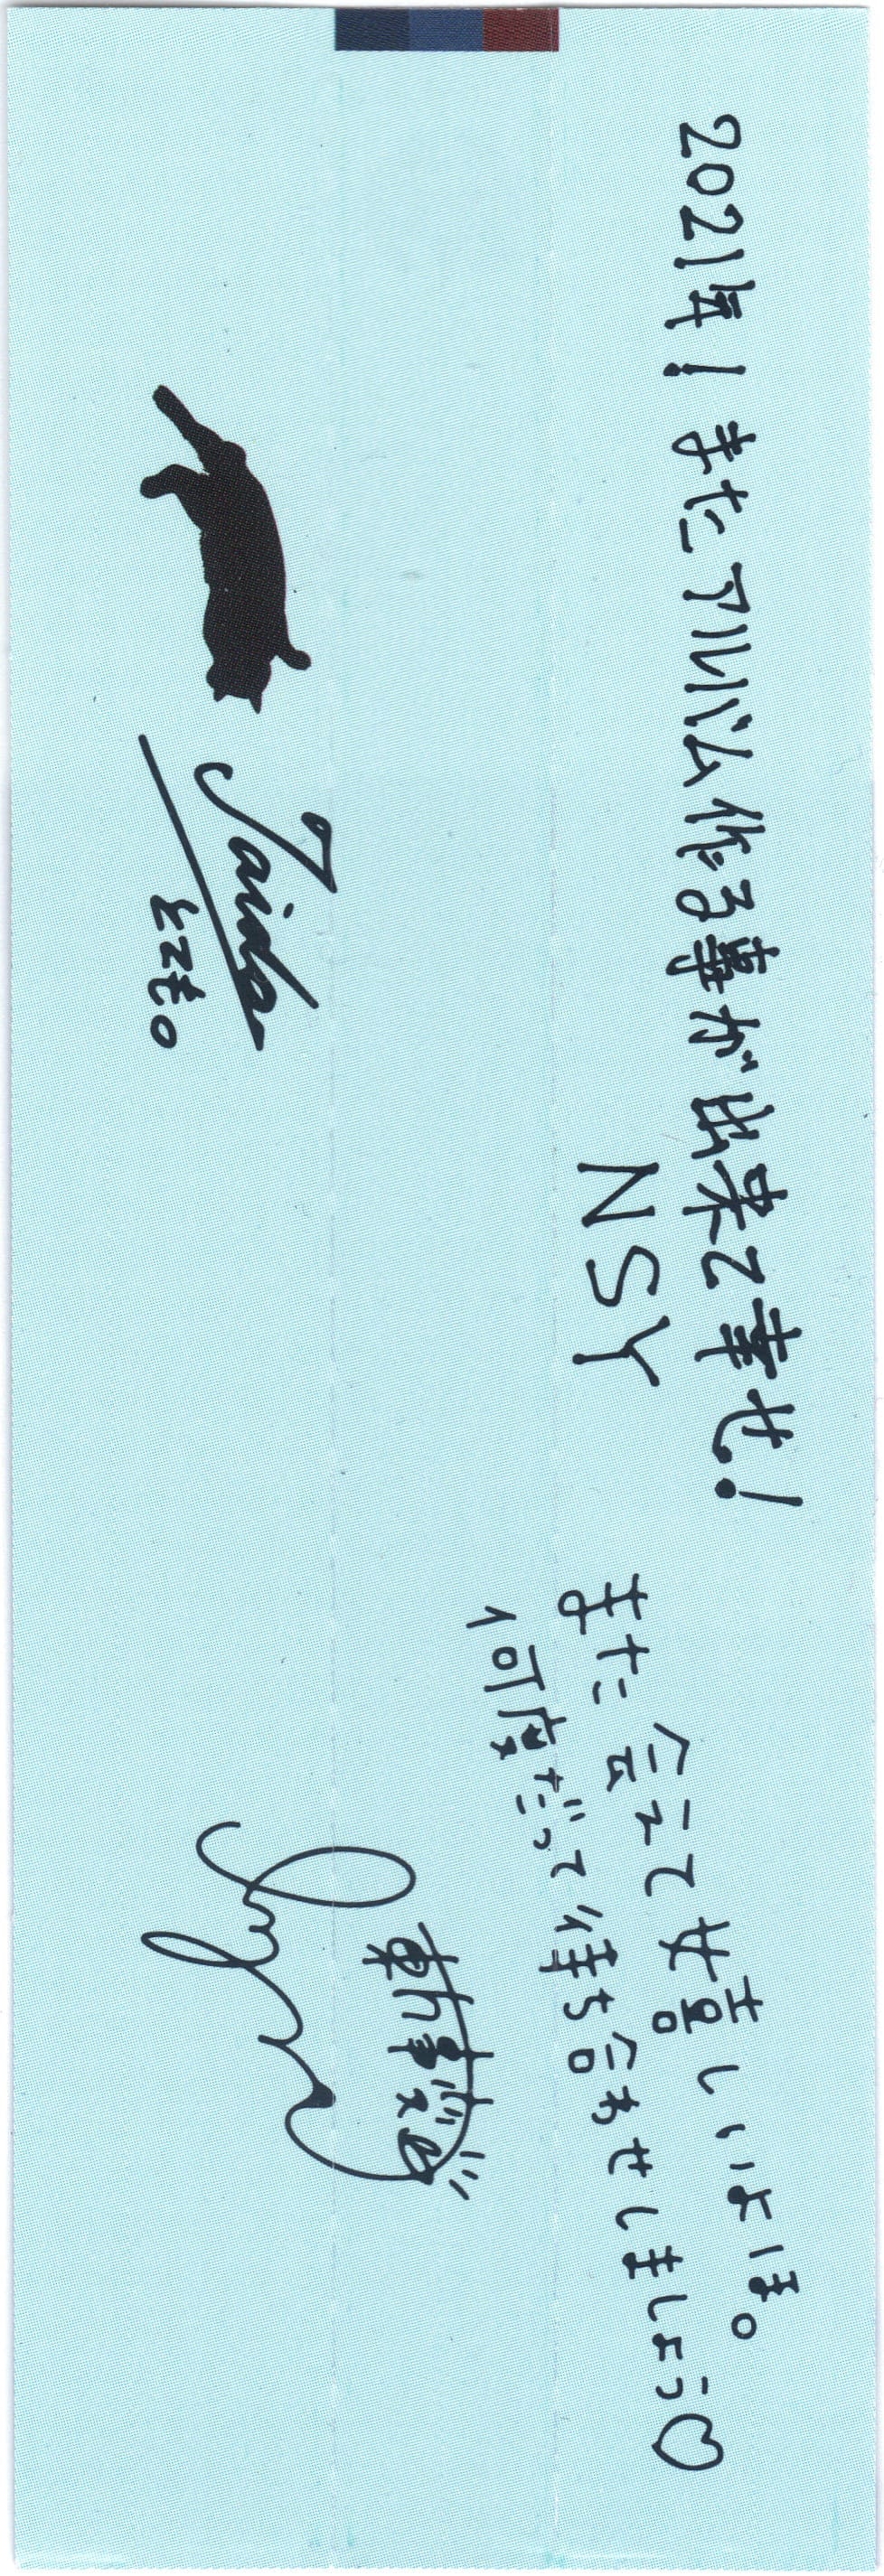 2021年! またアルバム作る事が出来て幸せ!
NSY
また会えて嬉しいよほ。
何度だって待ち合わせしましょう♡